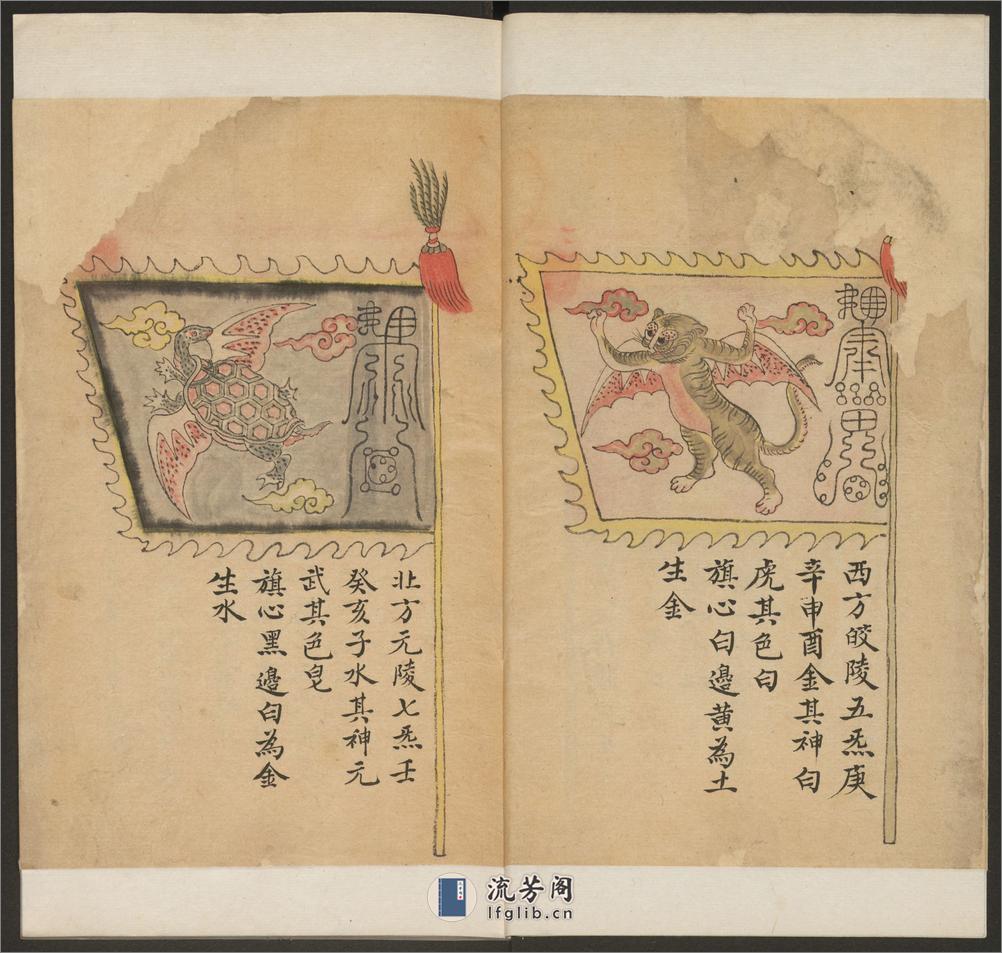 西方皎陵五炁庚
辛申酉金其神白
虎其色白
旗心白邊黃為土
生金
北方元陵七炁壬
癸亥子水其神元
武其色皂
旗心黑邊白為金
生水
流芳阁
lfglib.cn